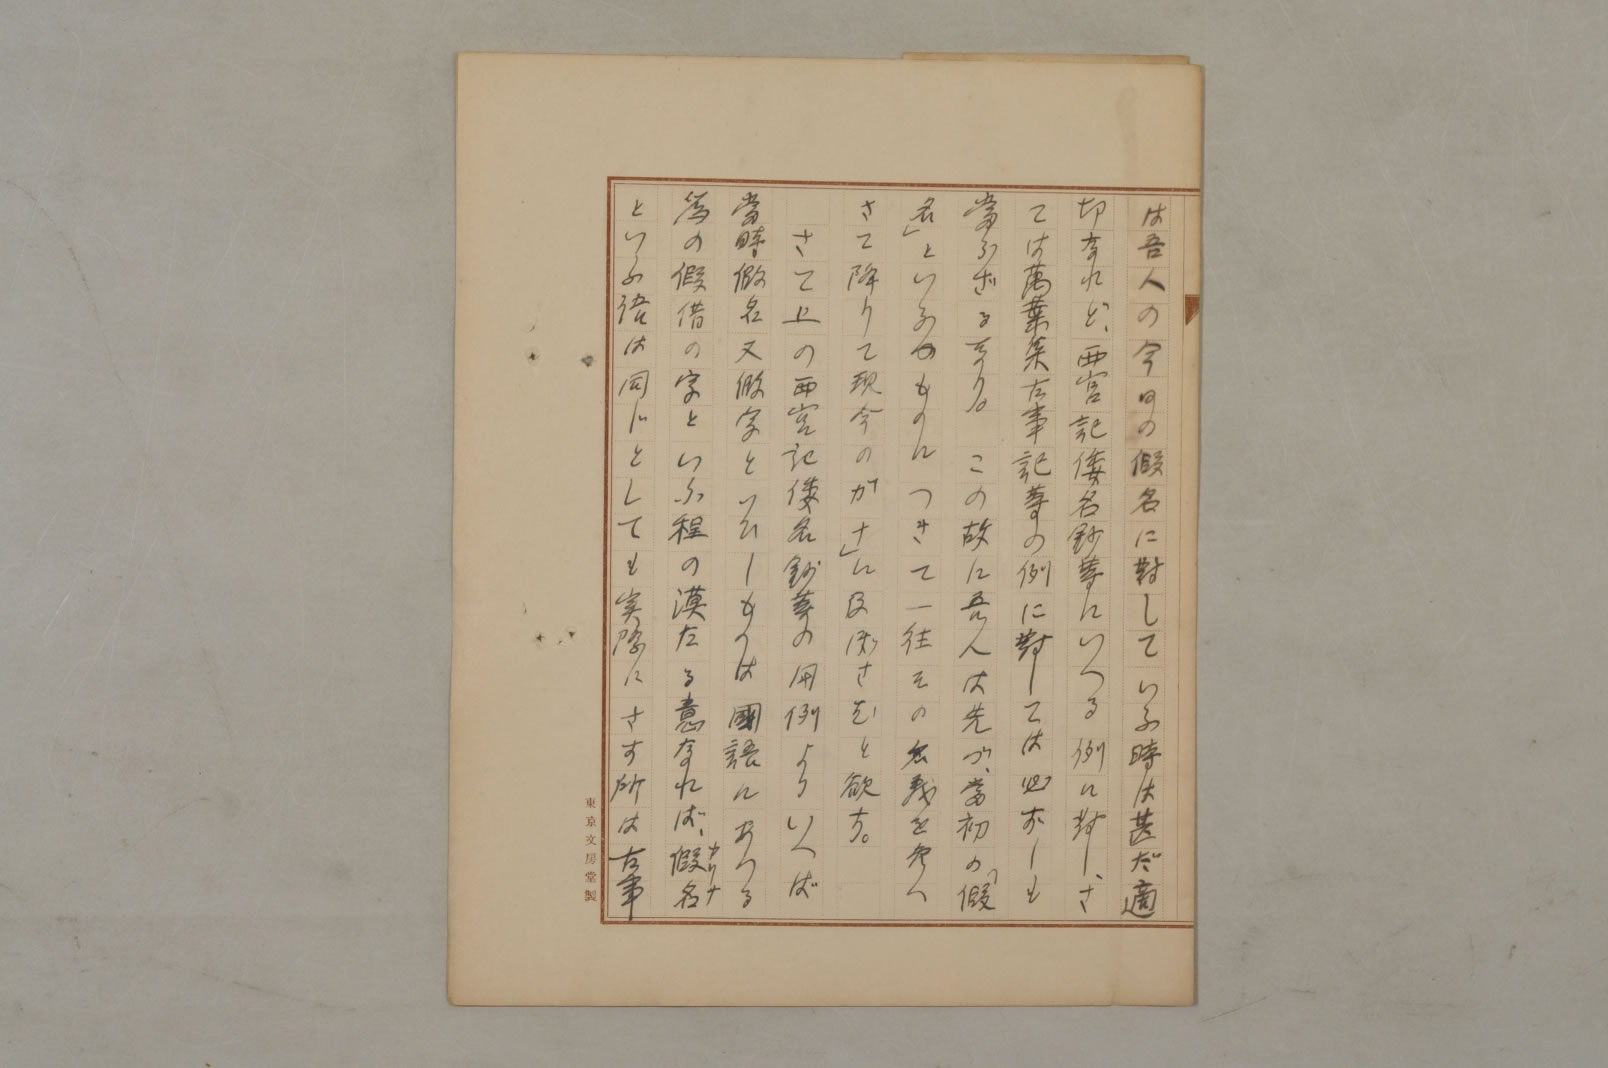 は吾人の今日の假名に對していふ時は甚だ適
切なれど、西宮記倭名鈔等にいへる例に對し、さ
ては萬葉集古事記等の例に對しては必ずしも
當らざるなり。この故に吾人は先づ、當初の「假
名」といふものにつきて一往その名義を考へ
さて降りて現今の「カナ」に及ぼさむと欲す。
さて上の西宮記倭名鈔等の用例よりいへば
當時假名又假字といひしものは國語にあつる
爲の假借の字といふ程の漠たる意なれば、假名
カリナ
といふ語は同じとしても実際にさす所は古事
東京文房堂製